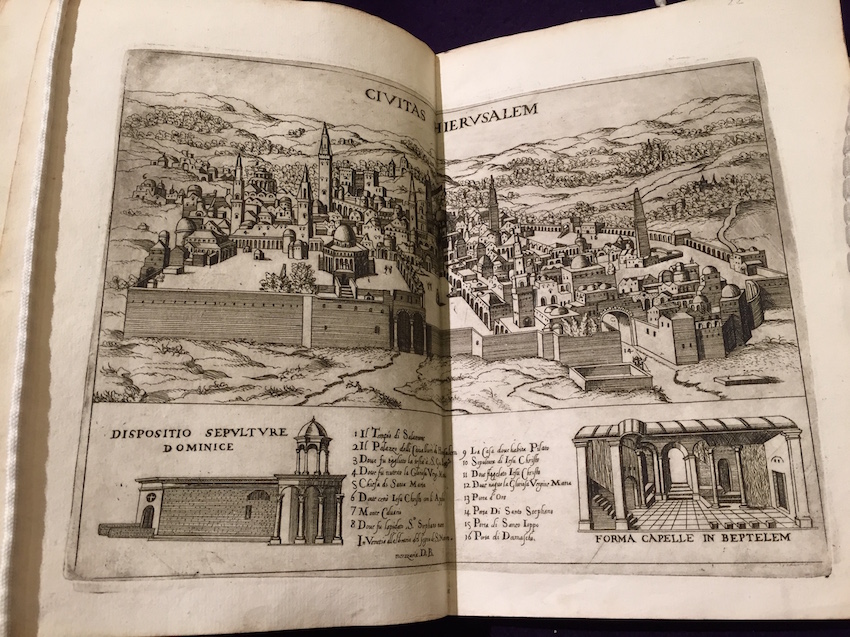 CIVITAS HIERVSALEM
DISPOSITIO SEPVLTVRE
DOMINICE
1 Il Tempio di Salamone
2 Il Palazzo delli
3 Doue fu tagliato la testa a S.
4 Doue fu nutrito la Gloriosa Verg. Maria
5 Chiesa di Santa Maria
6 Doue cenò Iesu Christo con li Apostoli
7 Monte Caluario
8 Doue fu lapidato S. Stephano
In Venetia alla libraria del segno di S. Marco
in merzaria D. B.
9 La Casa doue habita Pilato
10 Sepultura di Iesu Christo
11 Doue fu flagellato Iesu Christo
12 Doue naque la Gloriosa Vergine Maria
13 Porta d'Oro
14 Porta Di Santo Stephano
15 Porta di Santo Ioppi
16 Porta di Damasco
FORMA CAPELLE IN BEPTELEM